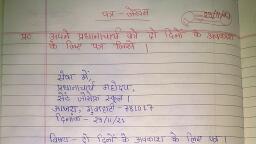 पत्र - लेखन
29/11/21
प्र० अपने प्रधानाचार्य को दो दिनों के अवकाश
के लिए पत्र लिखो।
सेवा में,
प्रधानाचार्य महोदय,
सेंट जोसेफ स्कूल।
गुवाहाटी - 781017
दिनांक - 29/11/21
विषय - दो दिनों के अवकाश के लिए पत्र।